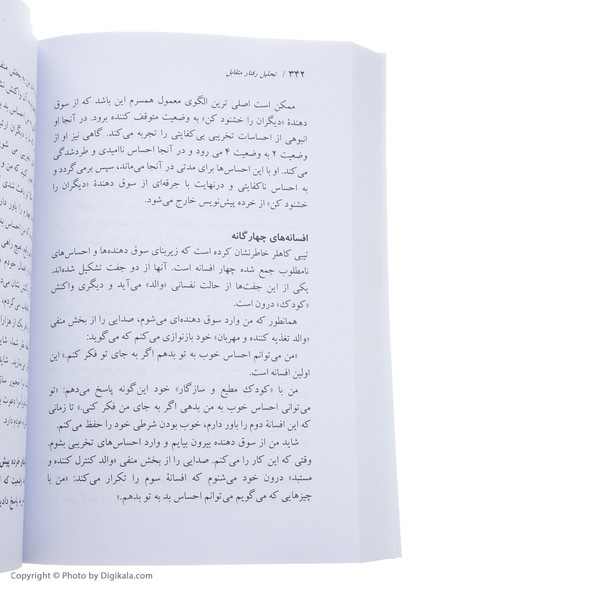 ۳۴۲ / تحلیل رفتار متقابل
ممکن است اصلی ترین الگوی معمول همسرم این باشد که از سوق
دهندهٔ «دیگران را خشنود کن» به وضعیت متوقف کننده برود. در آنجا او
انبوهی از احساسات تخریبی بی‌کفایتی را تجربه می‌کند. گاهی نیز او از
وضعیت ۲ به وضعیت ۴ می رود و در آنجا احساس ناامیدی و طردشدگی
می‌کند. او با این احساس‌ها برای مدتی در آنجا می‌ماند، سپس برمی‌گردد و
به احساس ناکفایتی و درنهایت با جرقه‌ای از سوق دهندهٔ «دیگران را
خشنود کن» از خرده پیش‌نویس خارج می‌شود.
افسانه‌های چهارگانه
تیبی کاهلر خاطرنشان کرده است که زیربنای سوق دهنده‌ها و احساس‌های
نامطلوب جمع شده چهار افسانه است. آنها از دو جفت تشکیل شده‌اند.
یکی از این جفت‌ها از حالت نفسانی «والد» می‌آید و دیگری واکنش
«کودک» درون است.
همانطور که من وارد سوق دهنده‌ای می‌شوم، صدایی را از بخش منفی
«والد تغذیه کننده و مهربان» خود بازنوازی می‌کنم که می‌گوید:
«من می‌توانم احساس خوب به تو بدهم اگر به جای تو فکر کنم.» این
اولین افسانه است.
من با «کودک مطیع و سازگار» خود این‌گونه پاسخ می‌دهم: «تو
می‌توانی احساس خوب به من بدهی اگر به جای من فکر کنی.» تا زمانی
که این افسانهٔ دوم را باور دارم، خوب بودن شرطی خود را حفظ می‌کنم.
شاید من از سوق دهنده بیرون بیایم و وارد احساس‌های تخریبی بشوم.
وقتی که این کار را می‌کنم. صدایی را از بخش منفی «والد کنترل کننده و
مستبد» درون خود می‌شنوم که افسانهٔ سوم را تکرار می‌کند: «من با
چیزهایی که می‌گویم می‌توانم احساس بد به تو بدهم.»
Copyright © Photo by Digikala.com